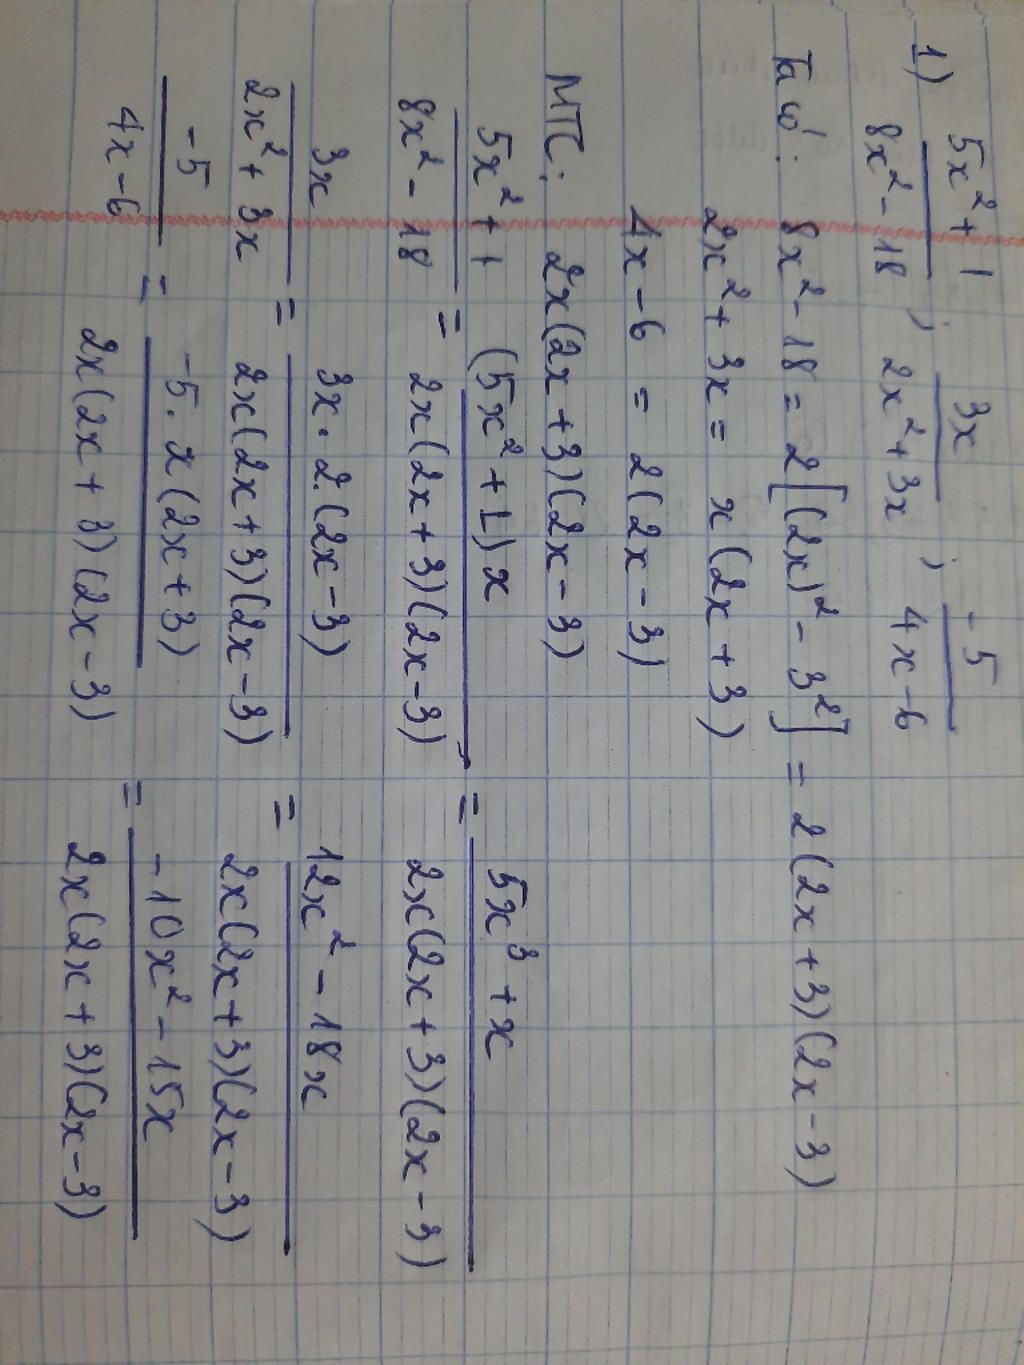 1) \frac{5x²+1}{8x²-18} ; \frac{3x}{2x²+3x} ; \frac{-5}{4x-6}
Ta có: 8x²-18 = 2[(2x)²-3²] = 2(2x+3)(2x-3)
2x²+3x = x(2x+3)
4x-6 = 2(2x-3)
MTC: 2x(2x+3)(2x-3)
\frac{5x²+1}{8x²-18} = \frac{(5x²+1)x}{2x(2x+3)(2x-3)} = \frac{5x³+x}{2x(2x+3)(2x-3)}
\frac{3x}{2x²+3x} = \frac{3x.2.(2x-3)}{2x(2x+3)(2x-3)} = \frac{12x²-18x}{2x(2x+3)(2x-3)}
\frac{-5}{4x-6} = \frac{-5.x(2x+3)}{2x(2x+3)(2x-3)} = \frac{-10x²-15x}{2x(2x+3)(2x-3)}